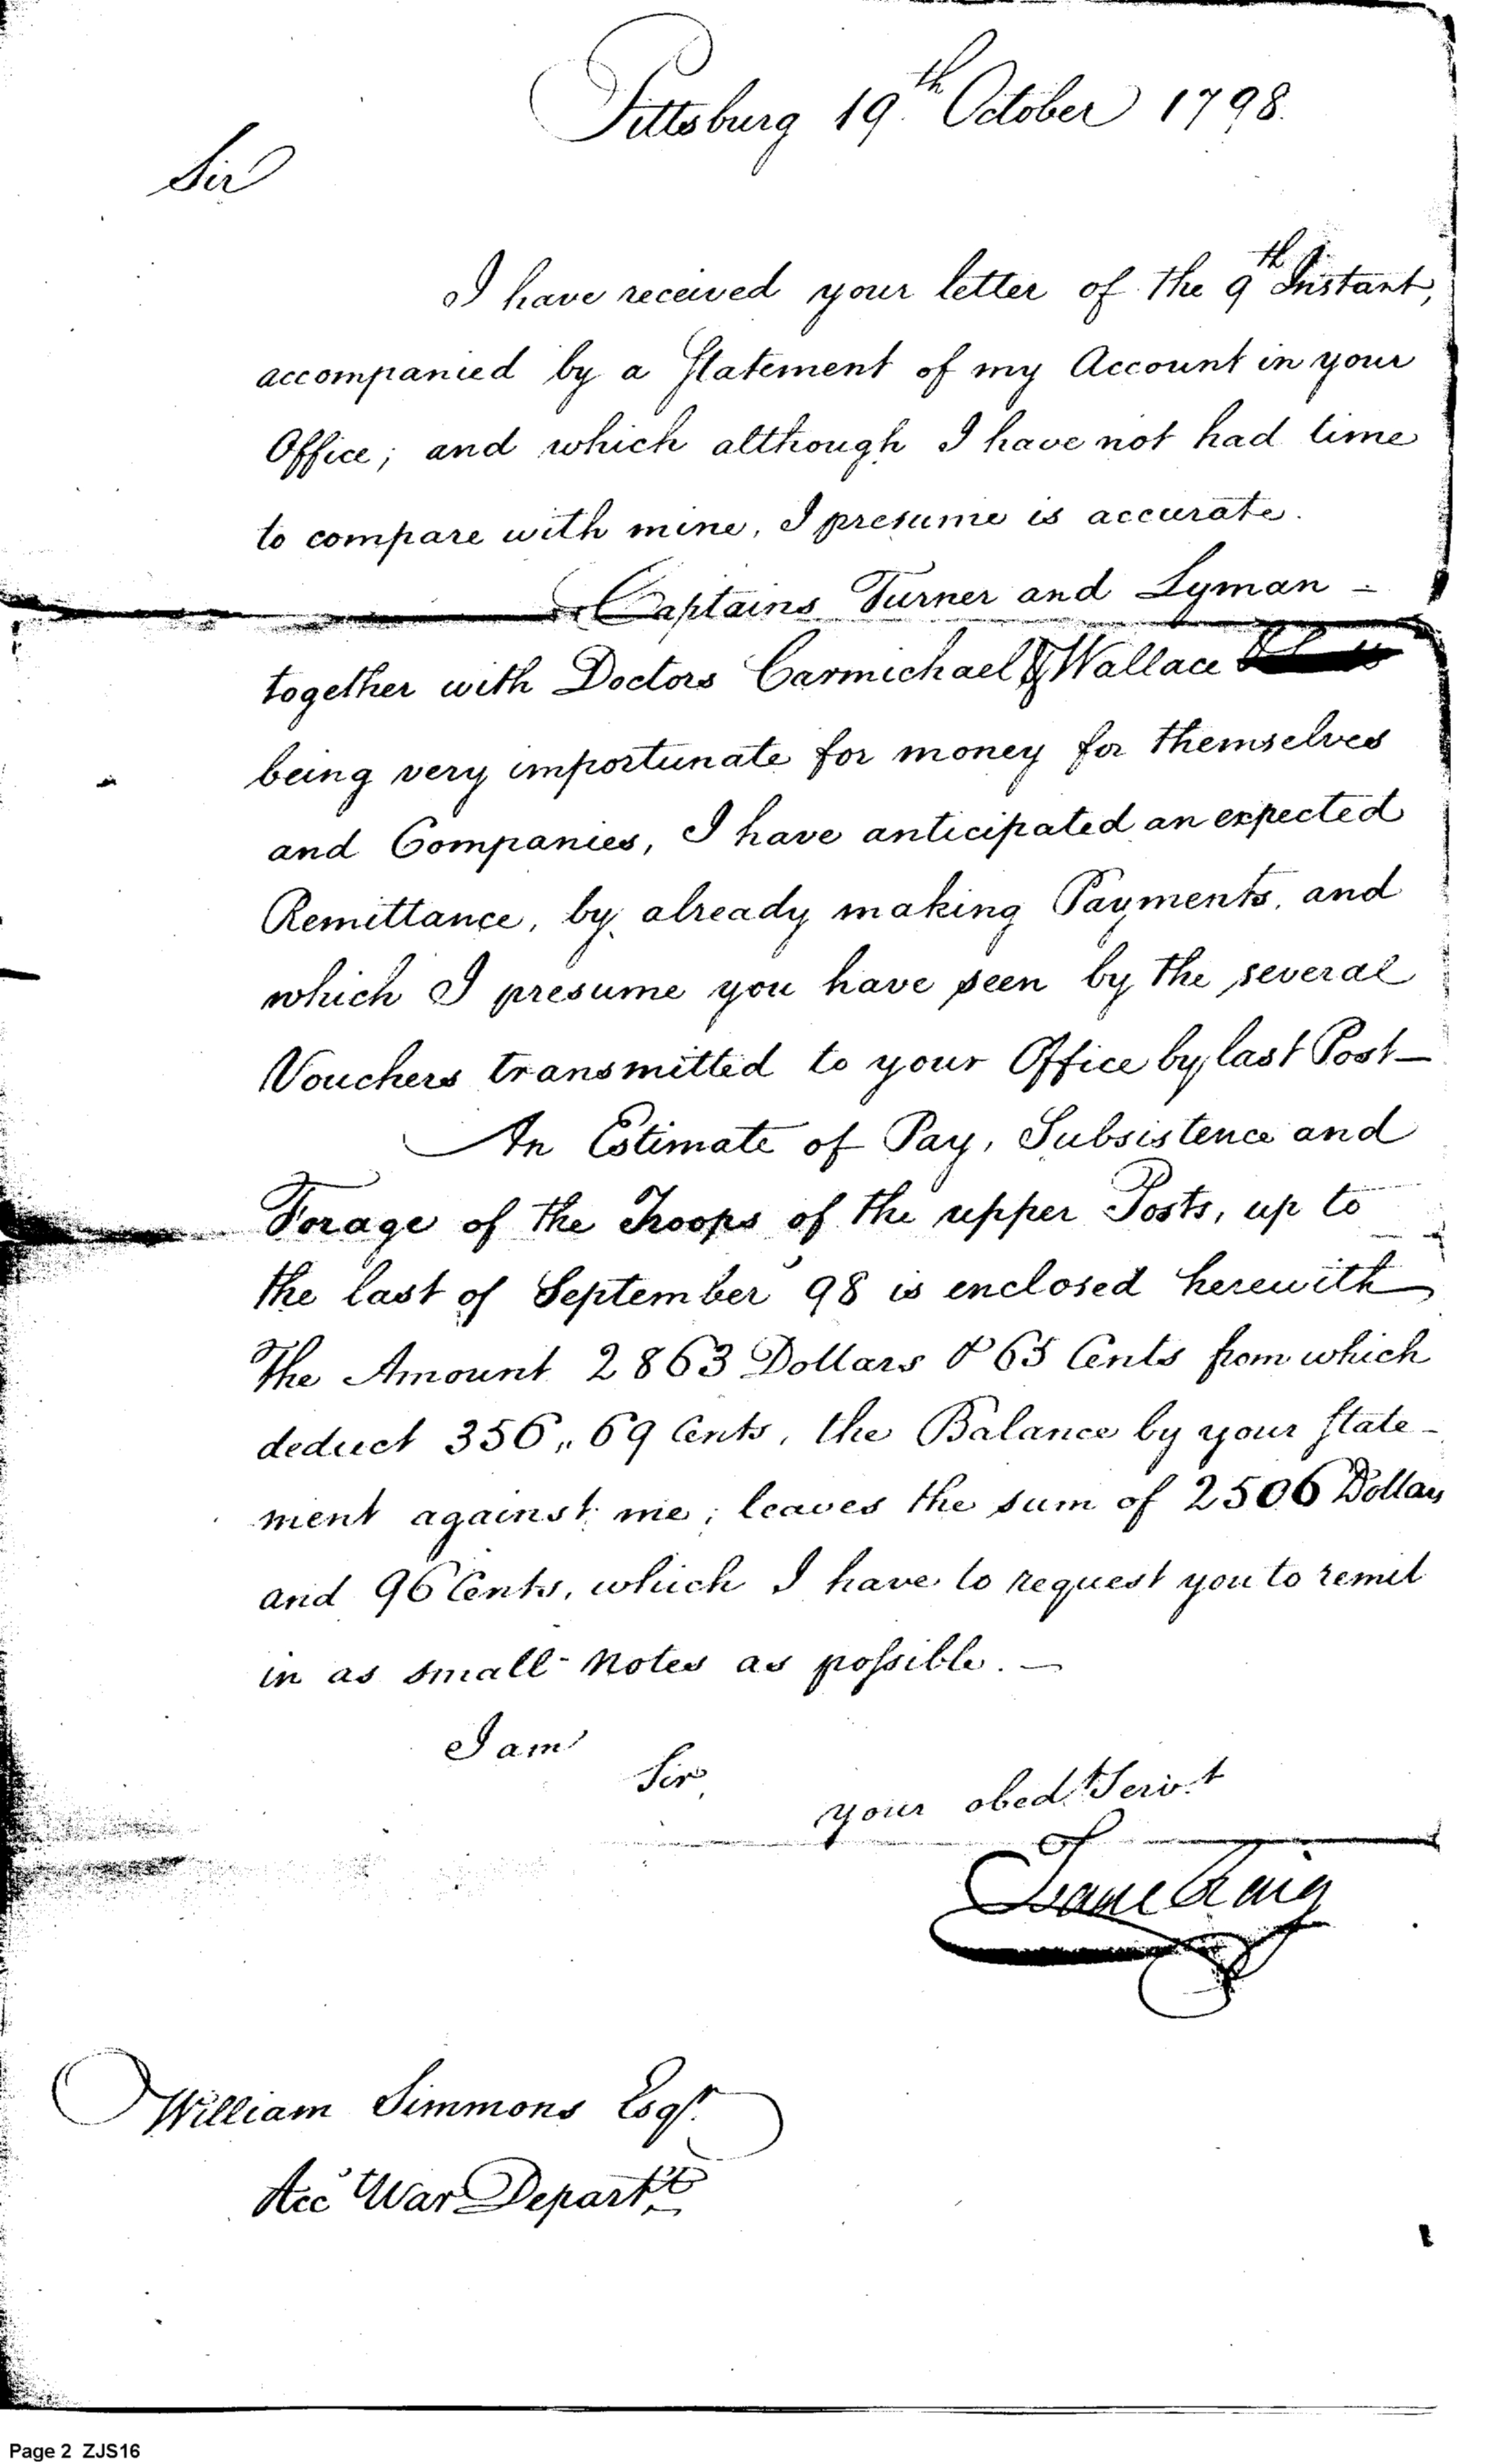 Pittsburg 19th October 1798.
Sir
I have received your letter of the 9th Instant,
accompanied by a Statement of my Account in your
Office; and which although I have not had time
to compare with mine, I presume is accurate.
Captains Turner and Lyman -
together with Doctors Carmichael & Wallace
being very importunate for money for themselves
and Companies, I have anticipated an expected
Remittance, by already making Payments, and
which I presume you have seen by the several
Vouchers transmitted to your Office by last Post—
An Estimate of Pay, Subsistence and
Forage of the Troops of the upper Posts, up to
the last of September 98 is enclosed herewith
The Amount 2863 Dollars & 65 Cents from which
deduct 356,, 69 Cents, the Balance by your State-
ment against me; leaves the sum of 2506 Dollars
and 96 Cents, which I have to request you to remit
in as small Notes as possible. —
I am
Sir,
your obedt Servt
Isaac Craig
William Simmons Esqr.
Acct War Departt
Page 2 ZJS16